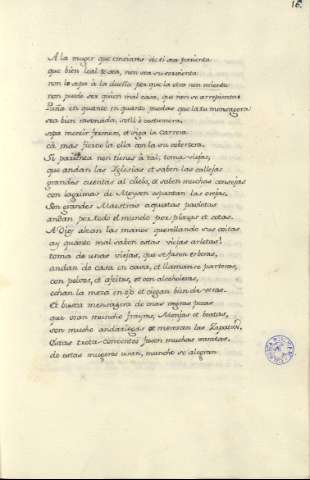 16.
A la muger que enviares de ti sea parienta
que bien leal te sea, non sea su servienta
non lo sepa à la dueña por que la otra non mienta
non puede ser quien mal casa, que non se arrepienta
Puña en quanto puedas que la tu mensagera
sea bien rasonada, sotil è costumera,
sepa mentir fermoso, et siga la carrera
cà mas fierbe la olla con la su cobertera.
Si parienta non tienes à tal, toma viejas,
que andan las Iglesias et saben las callejas
grandes cuentas al cuello, et saben muchas consejas
con lagrimas de Moysen escantan las orejas.
Son grandes Maestras aquestas pavietas
andan por todo el mundo por plazas et cotas.
A Dios alzan las manos querellando sus coitas
ay quanto mal saben estas viejas arlotas!
toma de unas viejas, que se fasen erberas,
andan de casa en casa, et llamanse parteras,
con polvos, et afeites, et con alcoholeras,
echan la moza en ojo et ciegan bien de veras.
Et busca mensagera de unas negras pecas
que usan muncho frayres, Monjas et beatas,
son mucho andariegas et merescen las Zapatas,
Estas trota-conventos fasen muchas baratas.
do estas mugeres usan, muncho se alegran